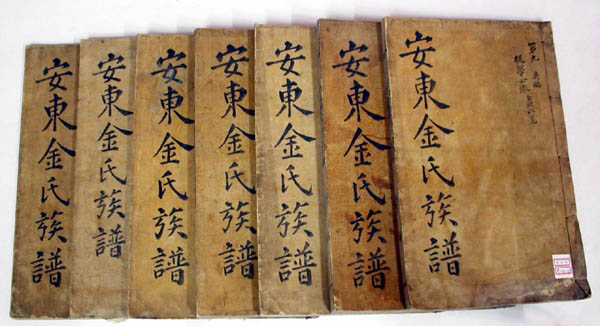 安東金氏族譜
安東金氏族譜
安東金氏族譜
安東金氏族譜
安東金氏族譜
安東金氏族譜
安東金氏族譜
第九